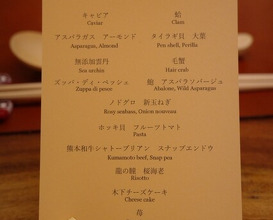 キャビア 蛤
Caviar Clam
アスパラガス アーモンド タイラギ貝 大葉
Asparagus, Almond Pen shell, Perilla
無添加雲丹 毛蟹
Sea urchin Hair crab
ズッパ・ディ・ペッシェ 鮑 アスパラソバージュ
Zuppa di pesce Abalone, Wild Asparagus
ノドグロ 新玉ねぎ
Rosy seabass, Onion nouveau
ホッキ貝 フルーツトマト
Pasta
熊本和牛シャトーブリアン スナップエンドウ
Kumamoto beef, Snap pea
龍の瞳 桜海老
Risotto
木下チーズケーキ
Cheese cake
苺